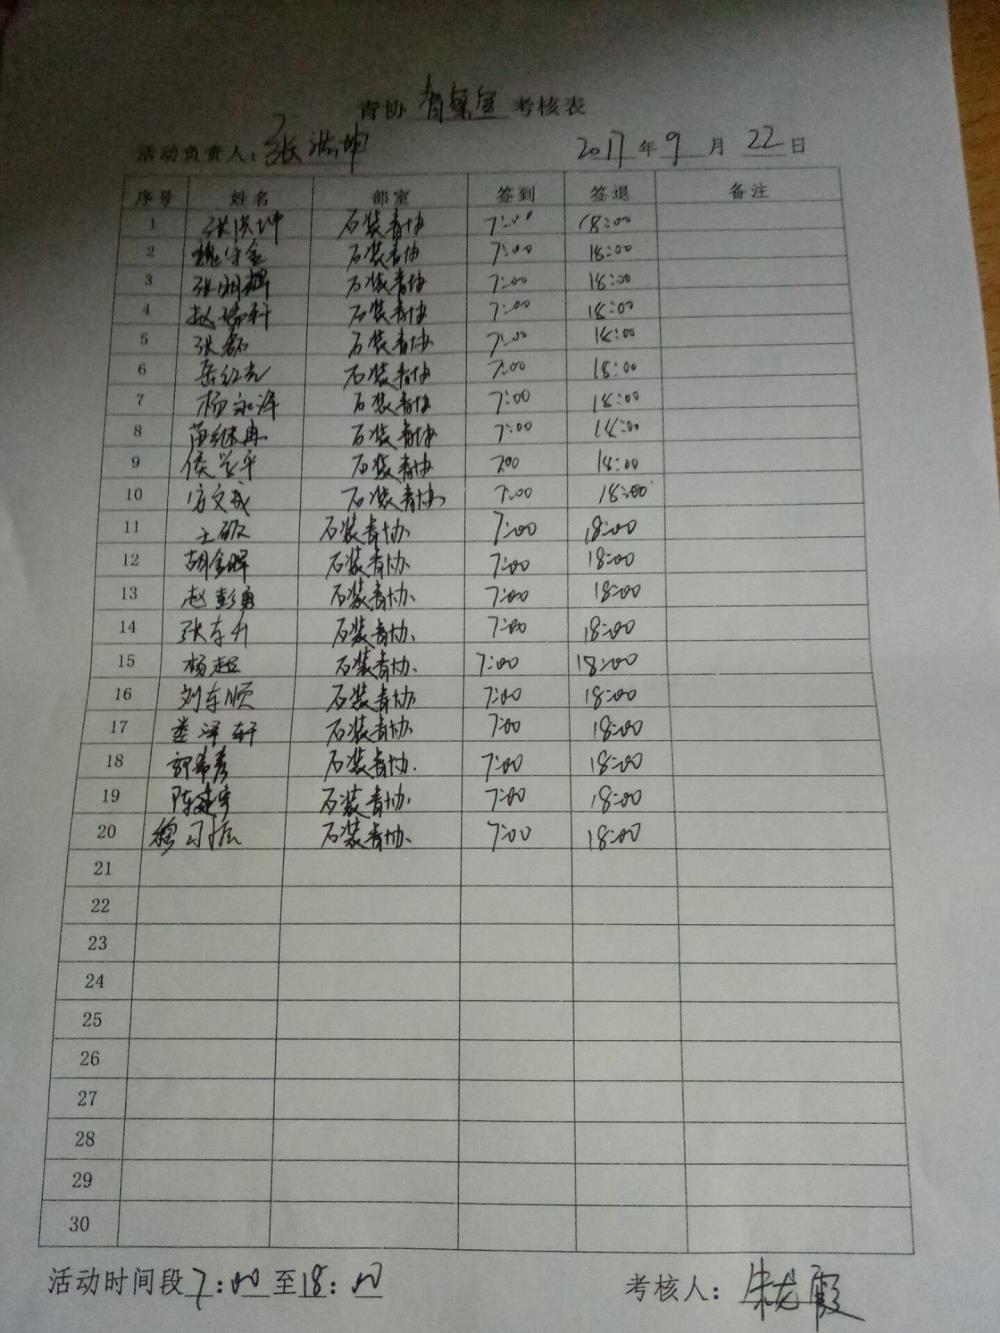 青协 考核表
活动负责人：张洪坤 2017年9月22日
序号 姓名 部室 签到 签退 备注
1 张洪坤 石装青协 7:00 18:00
2 魏守金 石装青协 7:00 18:00
3 石装青协 7:00 18:00
4 赵瑞轩 石装青协 7:00 18:00
5 张磊 石装青协 7:00 18:00
6 岳红光 石装青协 7:00 18:00
7 杨永泽 石装青协 7:00 18:00
8 苗继冉 石装青协 7:00 18:00
9 石装青协 7:00 18:00
10 方文成 石装青协 7:00 18:00
11 石装青协 7:00 18:00
12 胡金晖 石装青协 7:00 18:00
13 赵彭勇 石装青协 7:00 18:00
14 张东升 石装青协 7:00 18:00
15 杨超 石装青协 7:00 18:00
16 刘东顺 石装青协 7:00 18:00
17 娄泽轩 石装青协 7:00 18:00
18 石装青协 7:00 18:00
19 陈建宇 石装青协 7:00 18:00
20 石装青协 7:00 18:00
21
22
23
24
25
26
27
28
29
30
活动时间段7:00至18:00 考核人：朱龙霞